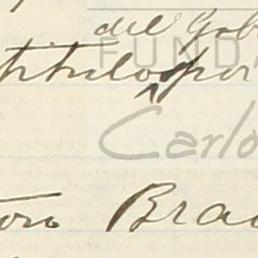 del Gob
FUNDA
titulo por
Carlo
Bra